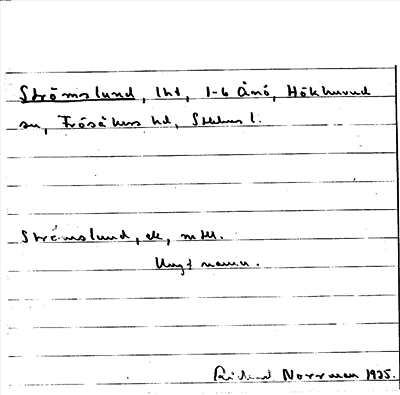 Strömslund, lht, 1-6 Ånö, Hökhuvud
sn, Frösåkers hd, Sthlms l.
Strömslund, ek, mtl.
Ungt namn.
Rickard Norrman 1935.